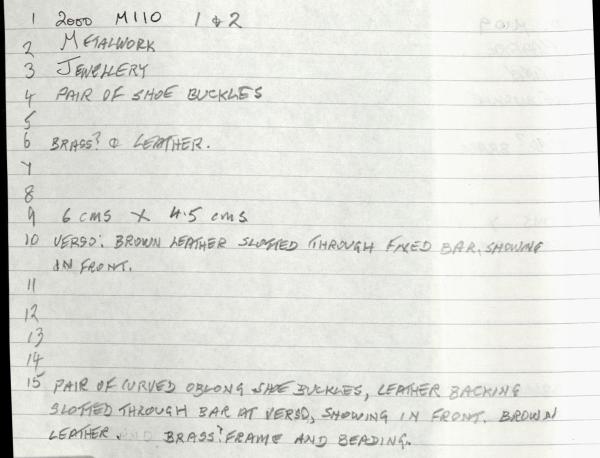 1 2000 M110 1 & 2
2 METALWORK
3 JEWELLERY
4 PAIR OF SHOE BUCKLES
5
6 BRASS? & LEATHER.
7
8
9 6 cms X 4.5 cms
10 VERSO: BROWN LEATHER SLOTTED THROUGH FIXED BAR, SHOWING
IN FRONT.
11
12
13
14
15 PAIR OF CURVED OBLONG SHOE BUCKLES, LEATHER BACKING
SLOTTED THROUGH BAR AT VERSO, SHOWING IN FRONT. BROWN
LEATHER. BRASS? FRAME AND BEADING.